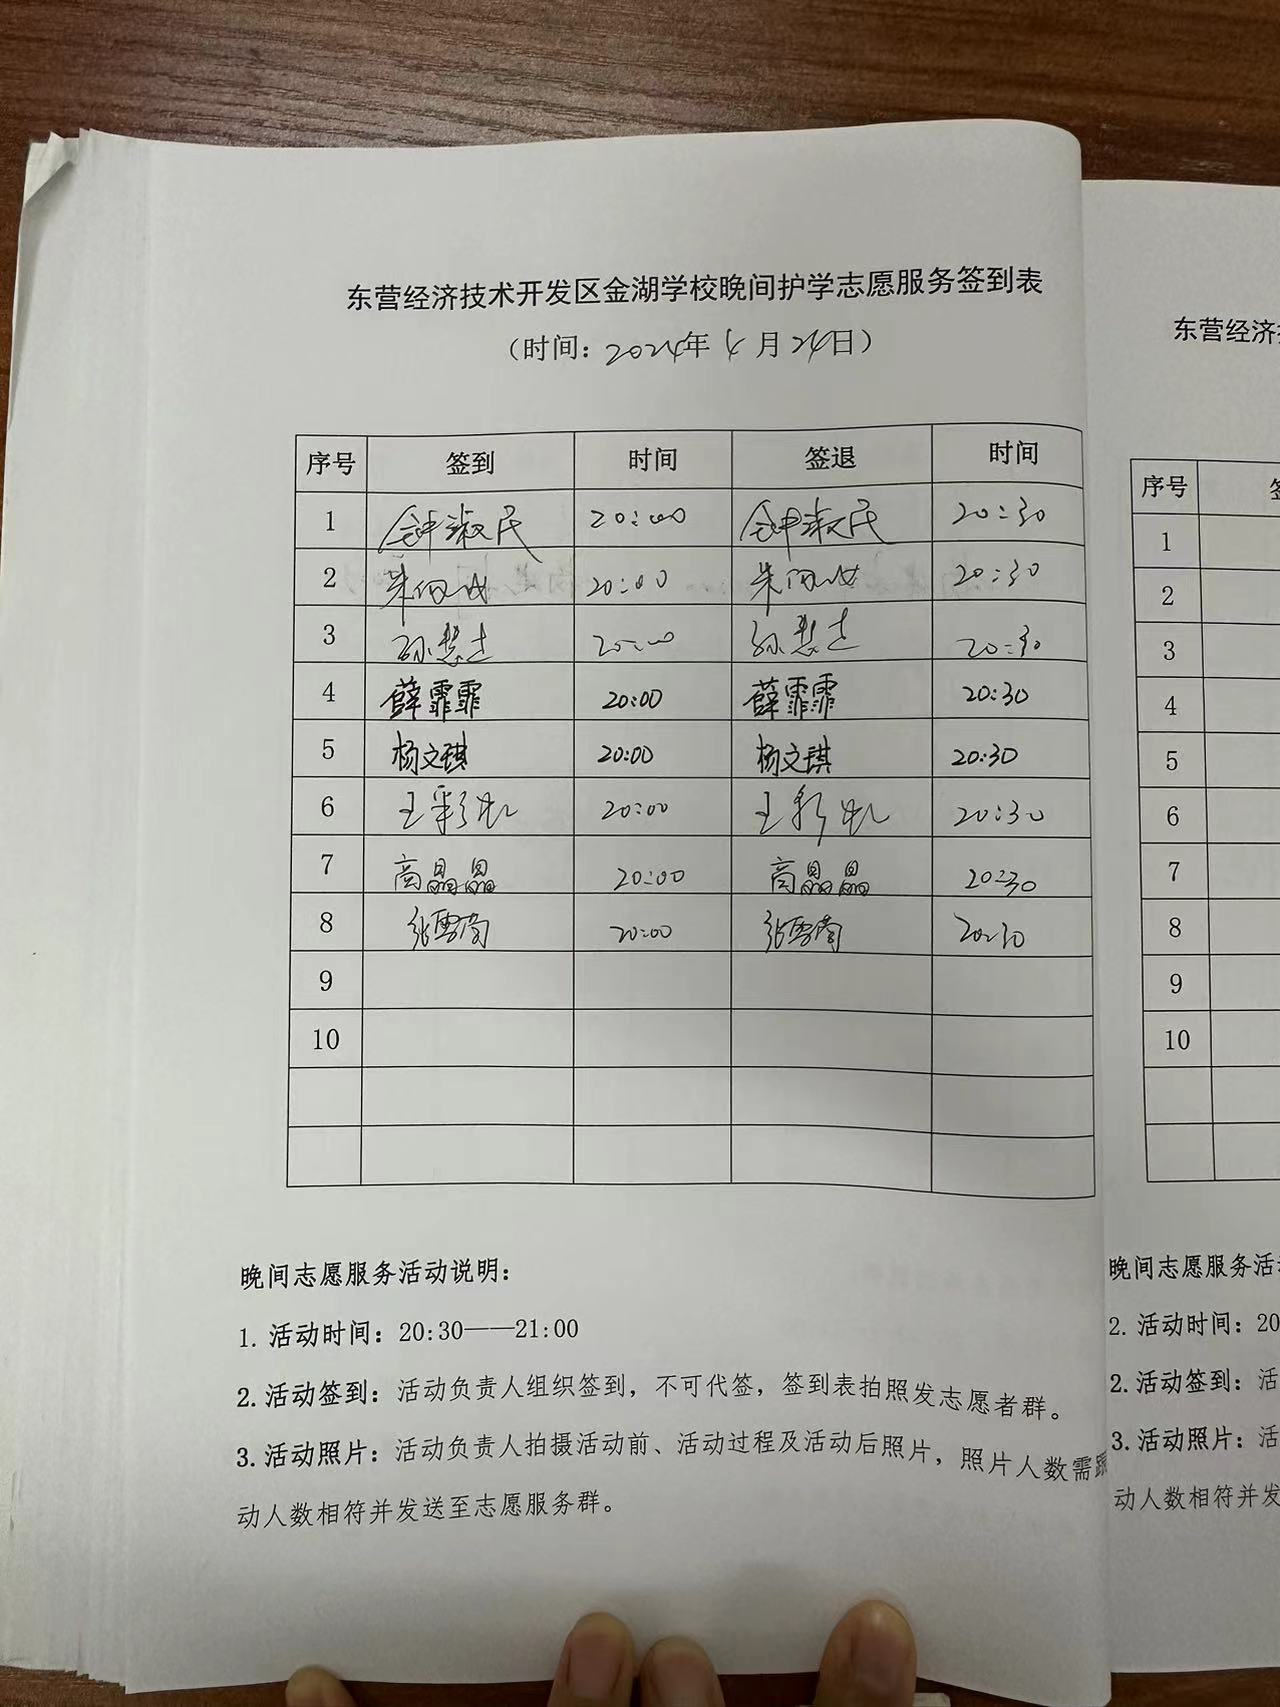 东营经济技术开发区金湖学校晚间护学志愿服务签到表
（时间：2024年 4 月 24日）
序号 签到 时间 签退 时间
1 钟淑民 20:00 钟淑民 20:30
2 20:00 20:30
3 孙慧 20:00 孙慧 20:30
4 薛霏霏 20:00 薛霏霏 20:30
5 杨文琪 20:00 杨文琪 20:30
6 王彩虹 20:00 王彩虹 20:30
7 高晶晶 20:00 高晶晶 20:30
8 张雪南 20:00 张雪南 20:30
9
10
晚间志愿服务活动说明：
1. 活动时间：20:30——21:00
2. 活动签到：活动负责人组织签到，不可代签，签到表拍照发志愿者群。
3. 活动照片：活动负责人拍摄活动前、活动过程及活动后照片，照片人数需跟
动人数相符并发送至志愿服务群。
东营经济
序号
1
2
3
4
5
6
7
8
9
10
晚间志愿服务活
2. 活动时间：20
2. 活动签到：活
3. 活动照片：活
动人数相符并发